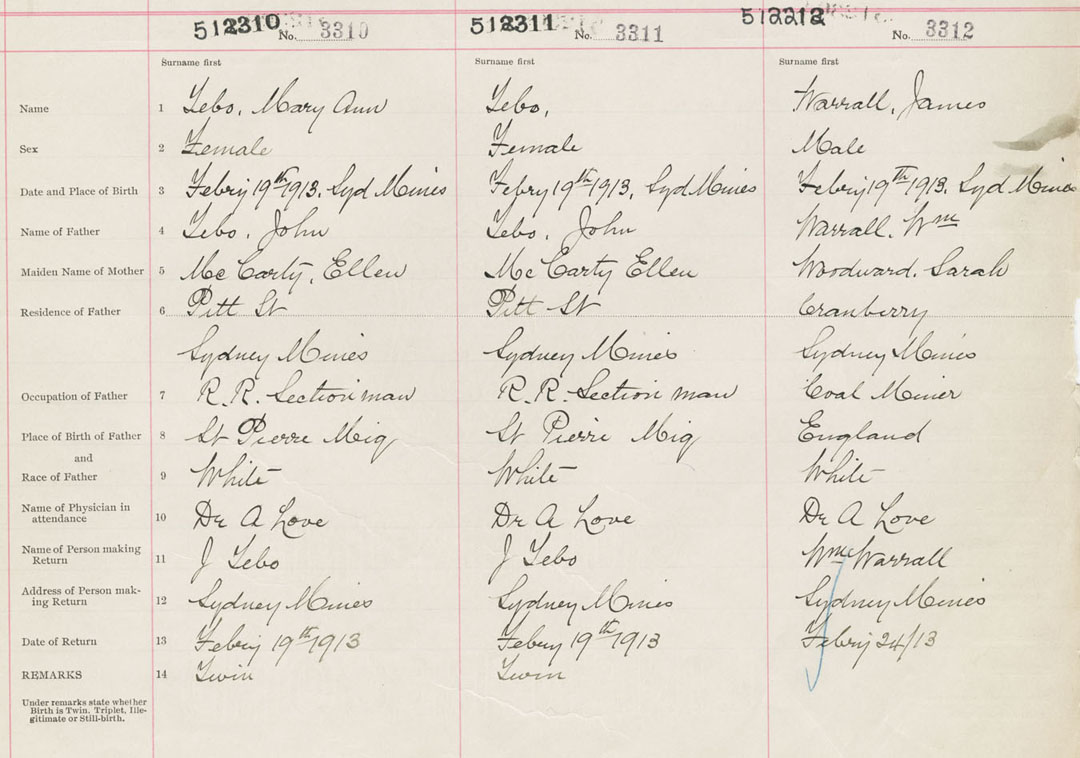 512310 No. 3310 512311 No. 3311 512212 No. 3312
Surname first Surname first Surname first
Name 1 Tebo, Mary Ann Tebo, Warrall, James
Sex 2 Female Female Male
Date and Place of Birth 3 Febry 19th 1913. Syd Mines Febry 19th 1913, Syd Mines Febry 19th 1913. Syd Mines
Name of Father 4 Tebo, John Tebo, John Warrall, Wm
Maiden Name of Mother 5 Mc Carty, Ellen Mc Carty Ellen Woodward, Sarah
Residence of Father 6 Pitt St Pitt St Cranberry
Sydney Mines Sydney Mines Sydney Mines
Occupation of Father 7 R. R. Section man R. R. Section man Coal Miner
Place of Birth of Father 8 St Pierre Miq St Pierre Miq England
and
Race of Father 9 White White White
Name of Physician in
attendance 10 Dr A Love Dr A Love Dr A Love
Name of Person making
Return 11 J Tebo J Tebo Wm Warrall
Address of Person mak-
ing Return 12 Sydney Mines Sydney Mines Sydney Mines
Date of Return 13 Febry 19th 1913 Febry 19th 1913 Febry 24/13
REMARKS 14 Twin Twin
Under remarks state whether
Birth is Twin, Triplet, Ille-
gitimate or Still-birth.